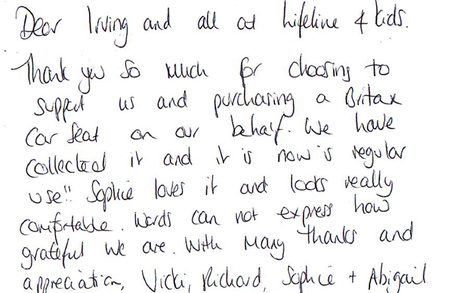 Dear Irving and all at Lifeline 4 kids.
Thank you so much for choosing to
support us and purchasing a Britax
Car Seat on our behalf. We have
collected it and it is now is regular
use!! Sophie loves it and looks really
comfortable. Words can not express how
grateful we are. With Many Thanks and
appreciation, Vicki, Richard, Sophie + Abigail